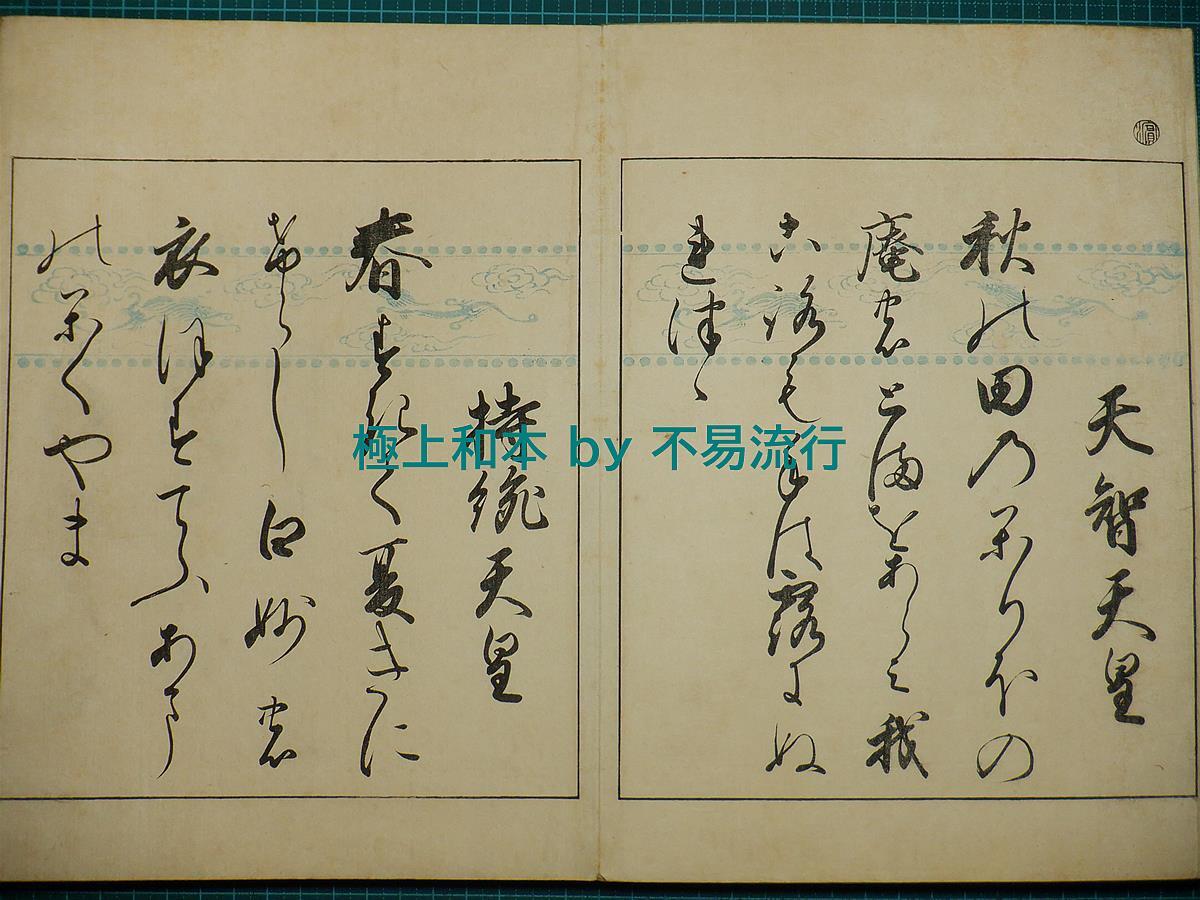 天智天皇
秋の田のかりほの
庵のとまをあらみ我
ころも手は露にぬ
れつゝ
持統天皇
春すきて夏きに
けらし白妙の
衣ほすてふあま
のかくやま
極上和本 by 不易流行